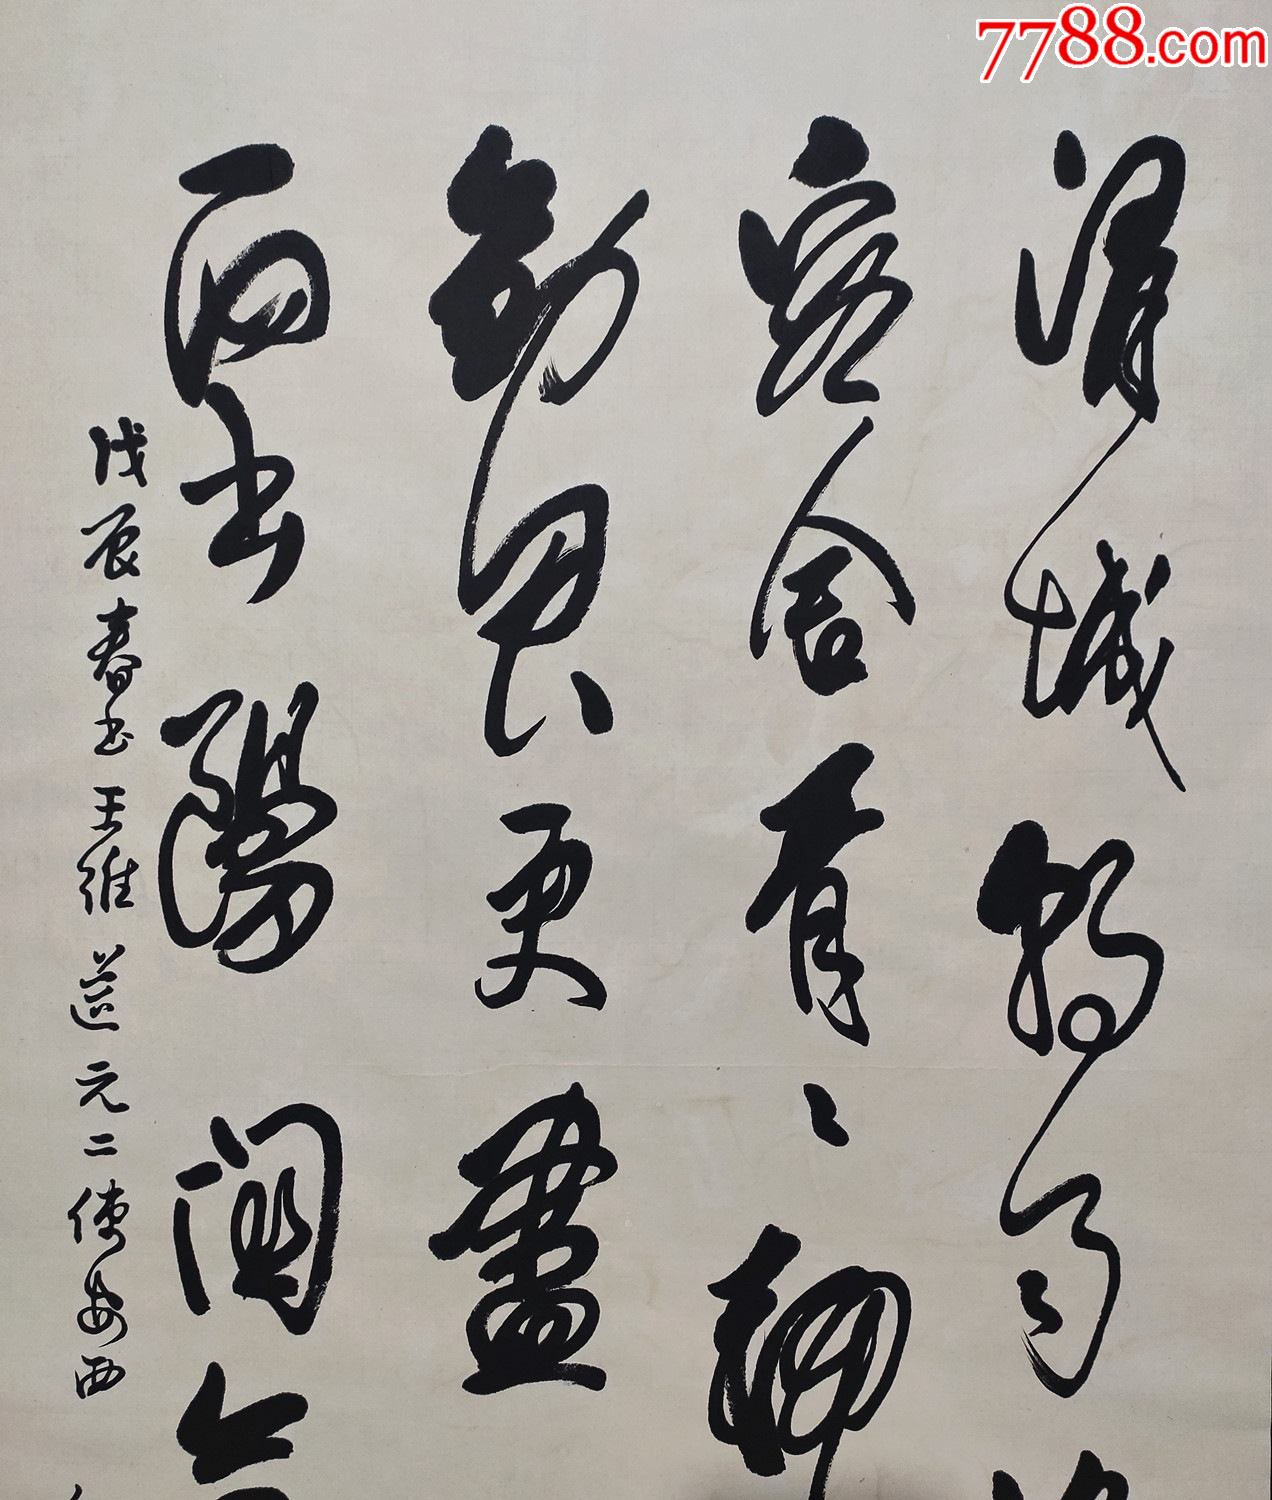 7788.com
渭城朝雨
客舍青々柳
勸君更盡
西出陽關
戊辰春书王维送元二使安西